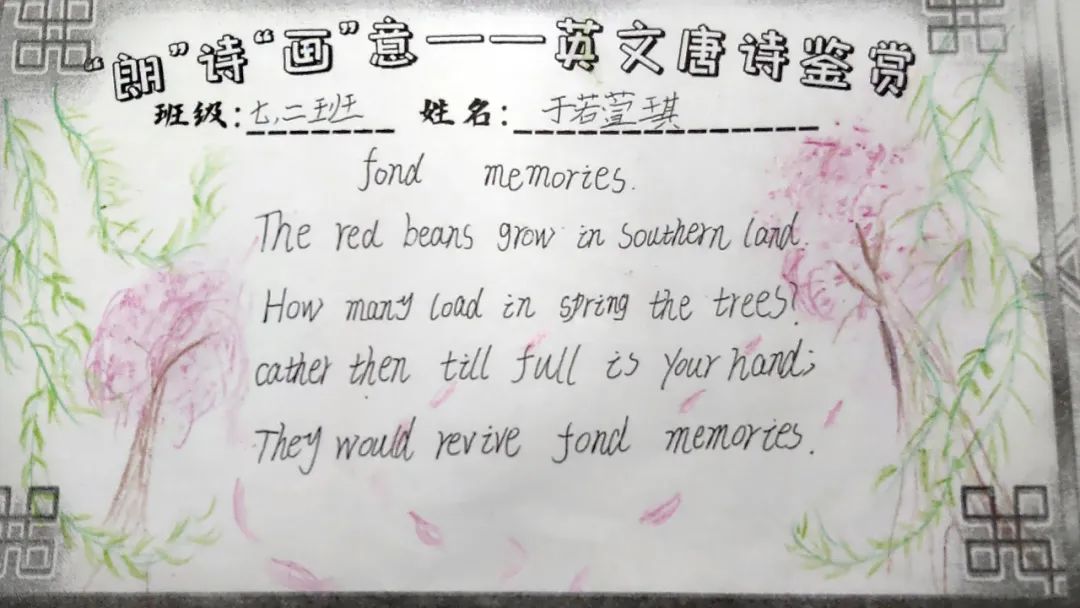 “朗”诗“画”意——英文唐诗鉴赏
班级:七.二班 姓名:于若萱琪
fond memories.
The red beans grow in southern land.
How many load in spring the trees?
cather then till full is your hand;
They would revive fond memories.